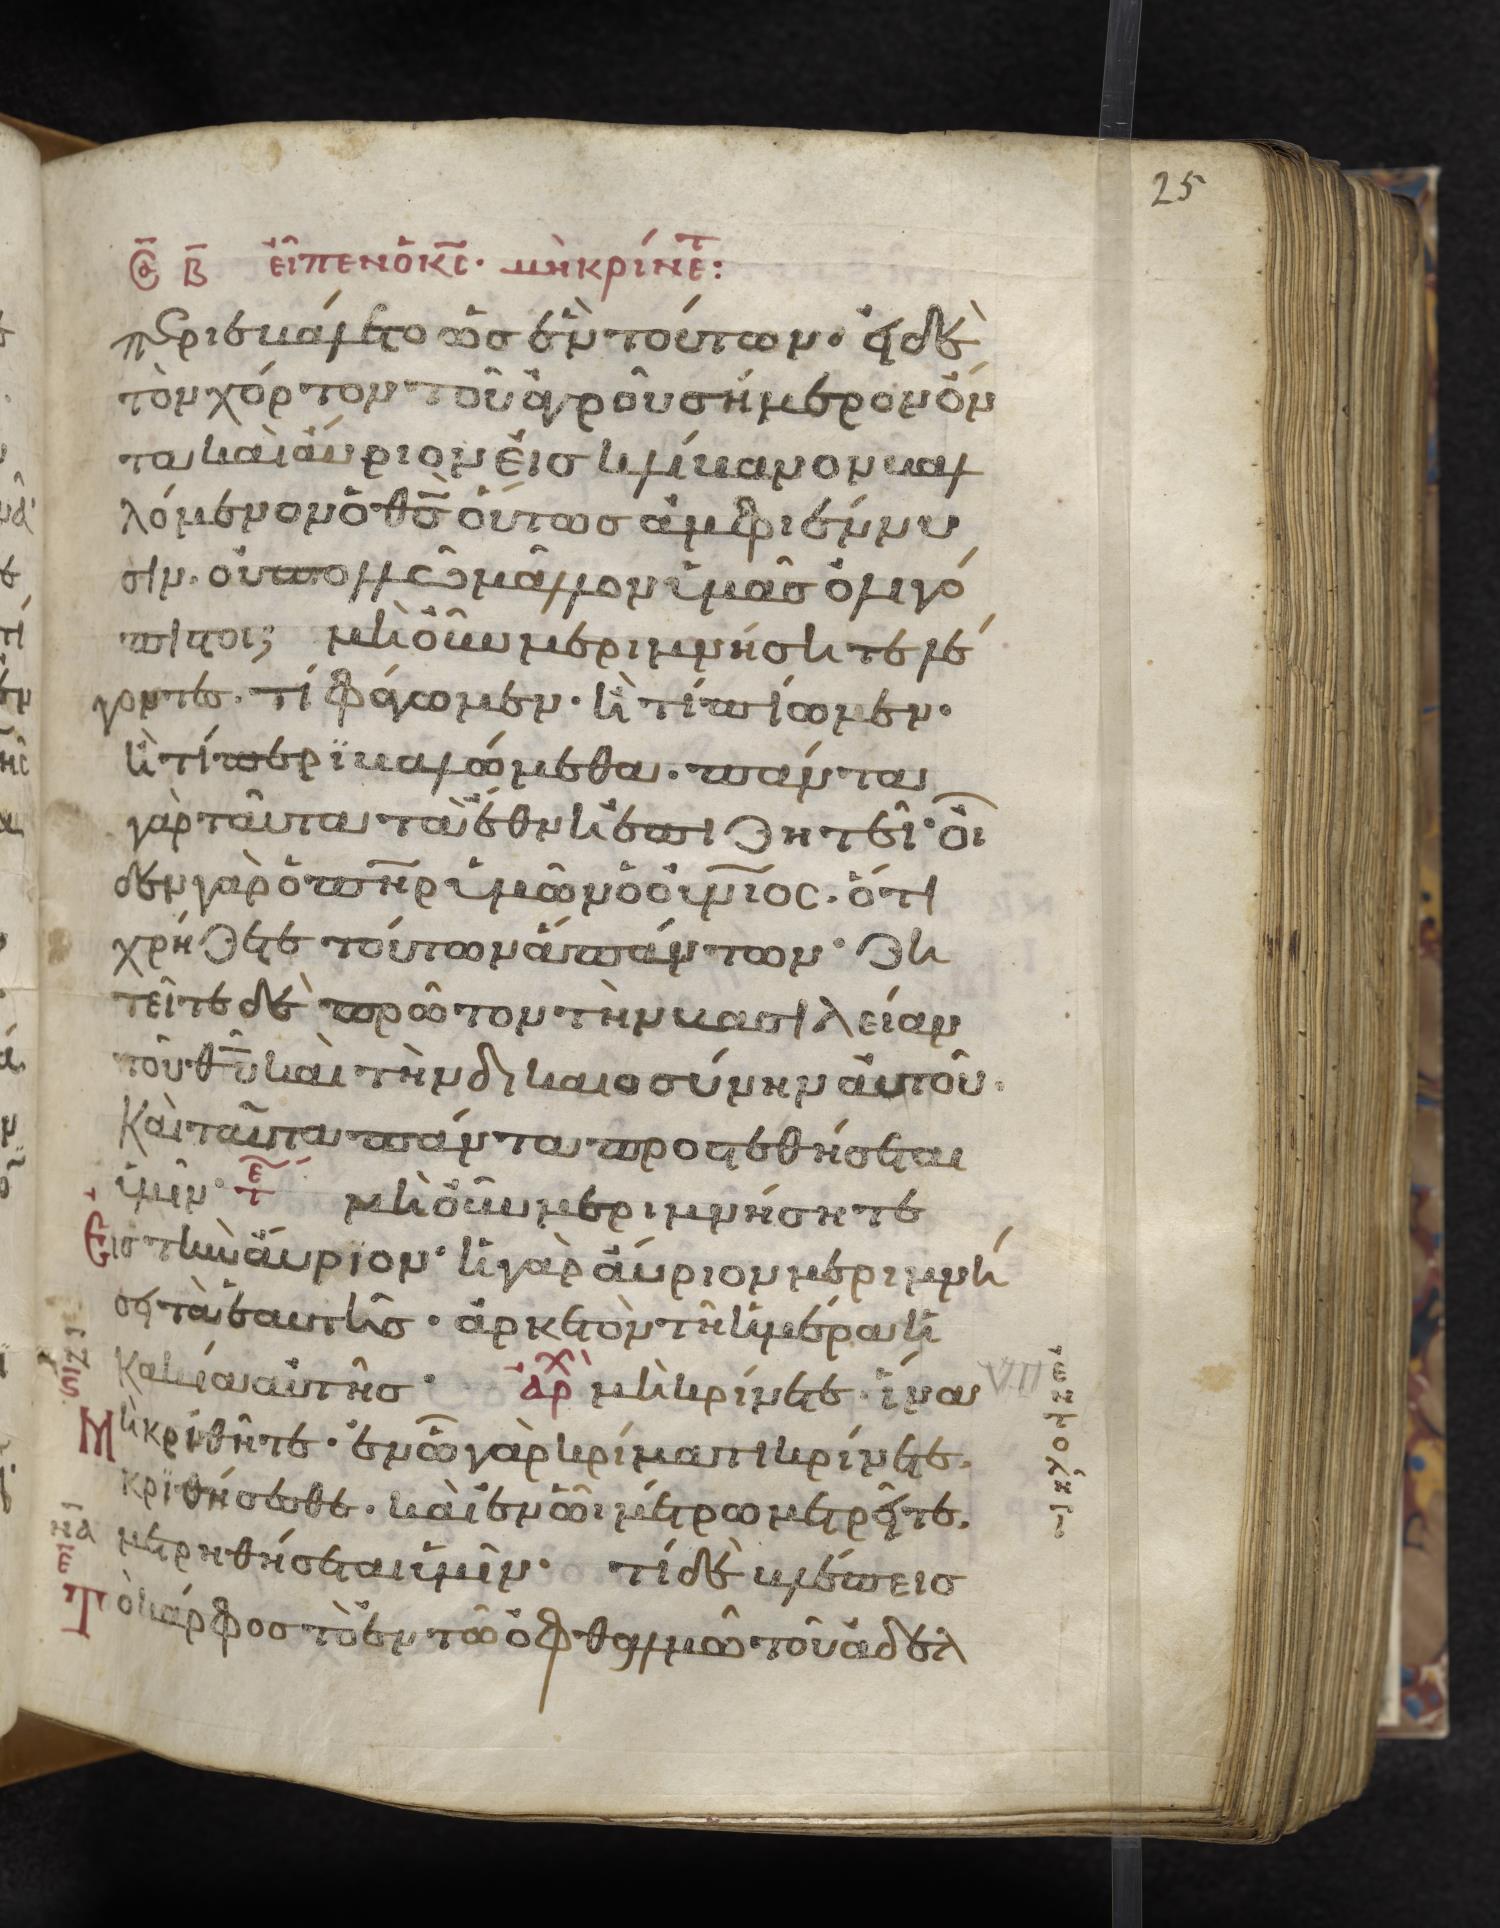 25
Σα Β εἶπεν ὁ κς· μὴ κρίνετ:
περιεβάλετο ὡς ἓν τούτων· εἰ δὲ
τὸν χόρτον τοῦ ἀγροῦ σήμερον ὄν
τα καὶ ἀύριον εἰς κλίβανον βαλ
λόμενον ὁ θς οὕτως ἀμφιέννυ
σιν· οὐ πολλῶ μᾶλλον ὑμᾶς ὀλιγό
πιστοι; μὴ οὖν μεριμνήσητε λέ
γοντες· τί φάγωμεν· ἢ τί πίωμεν·
ἢ τί περιβαλώμεθα· πάντα
γὰρ ταῦτα τὰ ἔθνη ἐπιζητεῖ· οἶ
δεν γὰρ ὁ πηρ ὑμῶν ὁ οὐνιος· ὅτι
χρήζετε τούτων ἁπάντων· ζη
τεῖτε δὲ πρῶτον τὴν βασιλείαν
τοῦ θυ καὶ τὴν δικαιοσύνην αὐτοῦ·
Καὶ ταῦτα πάντα προστεθήσεται
ὑμῖν· τε μὴ οὖν μεριμνήσητε
Εἰς τὴν αὔριον· ἡ γὰρ αὔριον μεριμνή
σει τὰ ἑαυτῆς· ἀρκετὸν τῆ ἡμέρα ἡ
κακία αὐτῆς· αρχ μὴ κρίνετε· ἵνα
VII
Μὴ κριθῆτε· ἐν ῶ γὰρ κρίματι κρίνετε·
κριθήσεσθε· καὶ ἐν ῶι μέτρω μετρεῖτε·
μετρηθήσεται ὑμῖν· τί δὲ βλέπεις
Τὸ κάρφος τὸ ἐν τῶ ὀφθαλμῶ τοῦ ἀδελ
να
ε